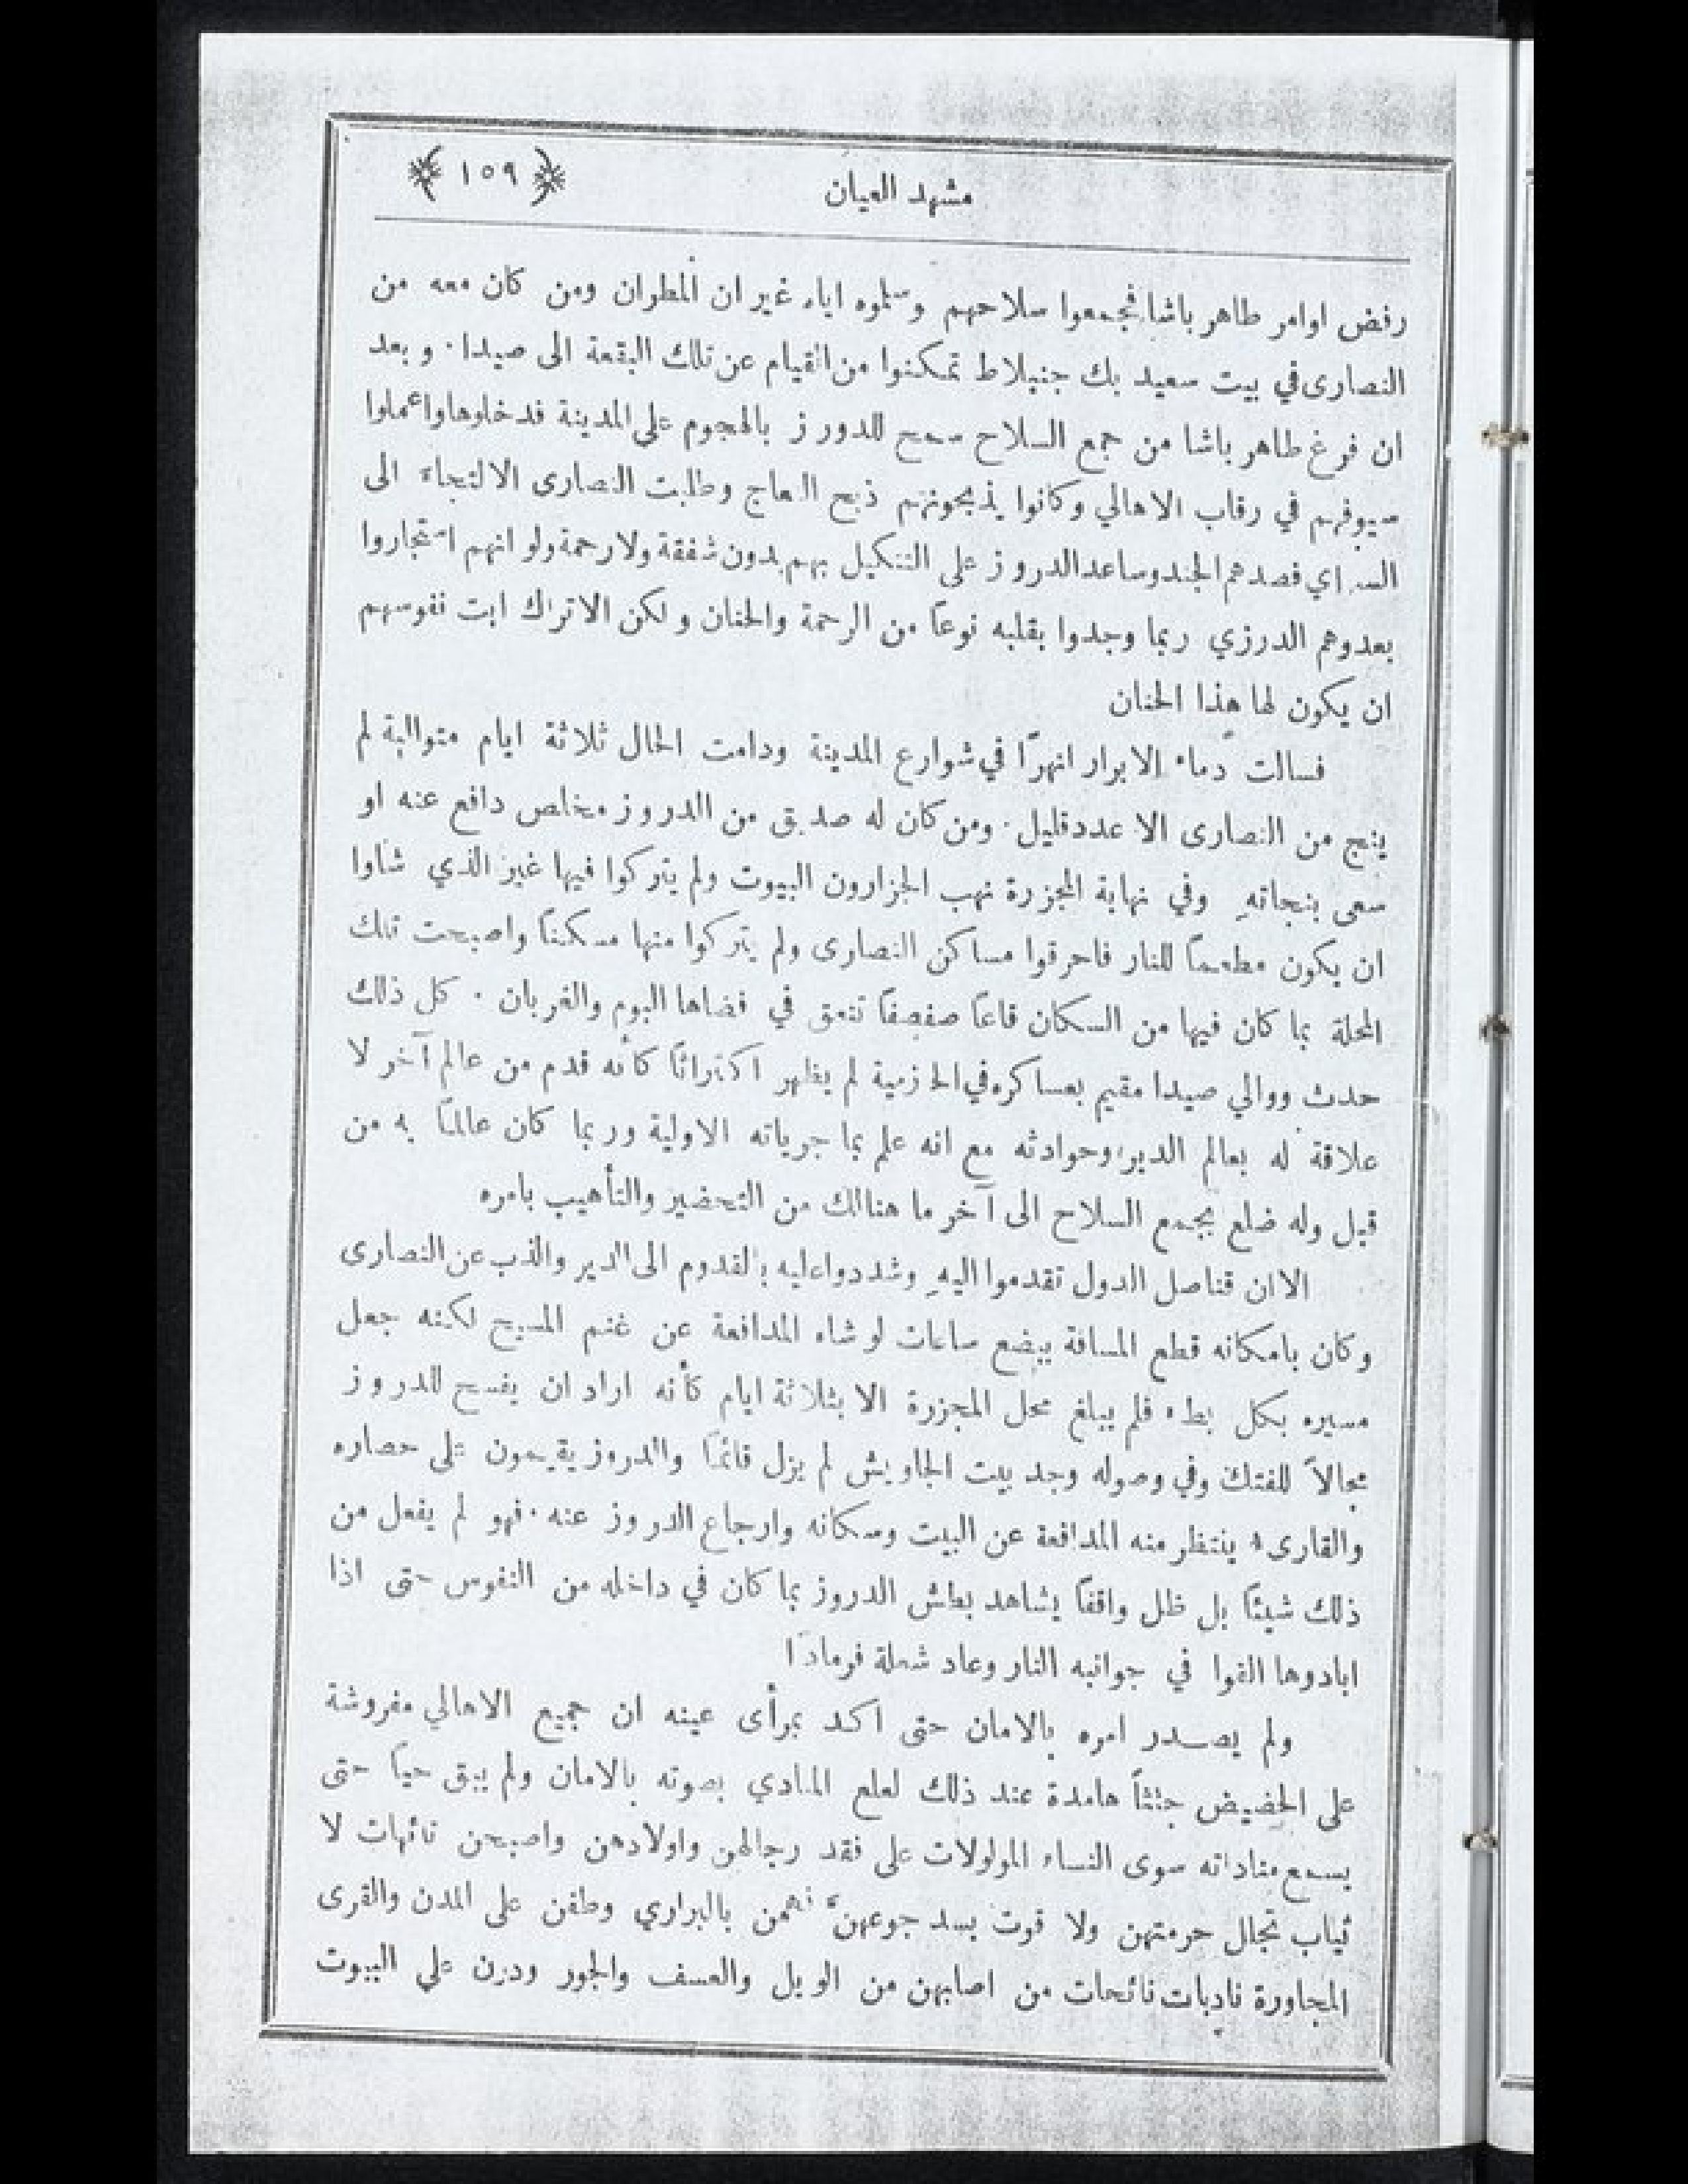 مشهد العيان ﴿ ١٥٩ ﴾
رفض اوامر طاهر باشا فجمعوا سلاحهم وسلموه اياه غير ان المطران ومن كان معه من
النصارى في بيت سعيد بك جنبلاط تمكنوا من القيام عن تلك البقعة الى صيدا ٠ وبعد
ان فرغ طاهر باشا من جمع السلاح سمح للدورز بالهجوم على المدينة فدخلوها واعملوا
سيوفهم في رقاب الاهالي وكانوا يذبحونهم ذبح النعاج وطلبت النصارى الالتجاء الى
السراي فصدهم الجند وساعد الدروز على التنكيل بهم بدون شفقة ولا رحمة ولو انهم استجاروا
بعدوهم الدرزي ربما وجدوا بقلبه نوعاً من الرحمة والحنان ولكن الاتراك ابت نفوسهم
ان يكون لها هذا الحنان
فسالت دماء الابرار انهرًا في شوارع المدينة ودامت الحال ثلاثة ايام متوالية لم
ينج من النصارى الا عدد قليل ٠ ومن كان له صديق من الدروز مخلص دافع عنه او
سعى بنجاتهِ وفي نهاية المجزرة نهب الجزارون البيوت ولم يتركوا فيها غير الذي شاوا
ان يكون مطعماً للنار فاحرقوا مساكن النصارى ولم يتركوا منها مسكناً واصبحت تلك
المحلة بما كان فيها من السكان قاعاً صفصفاً تنعق في فضاها البوم والغربان ٠ كل ذلك
حدث ووالي صيدا مقيم بعساكره في الحازمية لم يظهر اكتراثًا كأنه قدم من عالم آخر لا
علاقة له بعالم الدير وحوادثه مع انه علم بما جرياته الاولية وربما كان عالمًا به من
قبل وله ضلع بجمع السلاح الى آخر ما هنالك من التحضير والتأهيب بامره
الا ان قناصل الدول تقدموا اليهِ وشددوا عليه بالقدوم الى الدير والذب عن النصارى
وكان بامكانه قطع المسافة ببضع ساعات لو شاء المدافعة عن غنم المسيح لكنه جعل
مسيره بكل بطء فلم يبلغ محل المجزرة الا بثلاثة ايام كأنه اراد ان يفسح للدروز
مجالاً للفتك وفي وصوله وجد بيت الجاويش لم يزل قائمًا والدروز يقيمون على حصاره
والقارىء ينتظر منه المدافعة عن البيت وسكانه وارجاع الدروز عنه ٠ فهو لم يفعل من
ذلك شيئًا بل ظل واقفاً يشاهد بطش الدروز بما كان في داخله من النفوس حتى اذا
ابادوها القوا في جوانبه النار وعاد شعلة فرمادًا
ولم يصدر امره بالامان حتى اكد بمرأى عينه ان جميع الاهالي مفروشة
على الحضيض جثثاً هامدة عند ذلك لعلع المنادي بصوته بالامان ولم يبق حياً حتى
يسمع مناداته سوى النساء المولولات على فقد رجالهن واولادهن واصبحن تائهات لا
ثياب تجال حرمتهن ولا قوت يسد جوعهن فهمن بالبراري وطفن على المدن والقرى
المجاورة نادبات نائحات من اصابهن من الويل والعسف والجور ودرن على البيوت